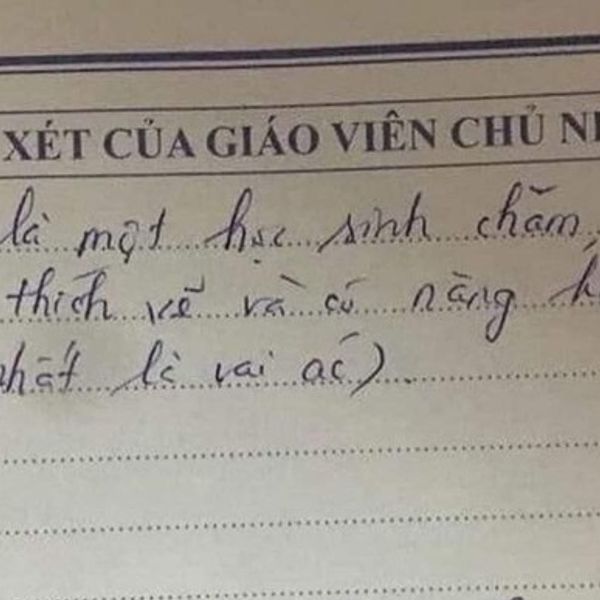 XÉT CỦA GIÁO VIÊN CHỦ
là một học sinh chăm
thích vẽ và có năng
nhất là vai ác)